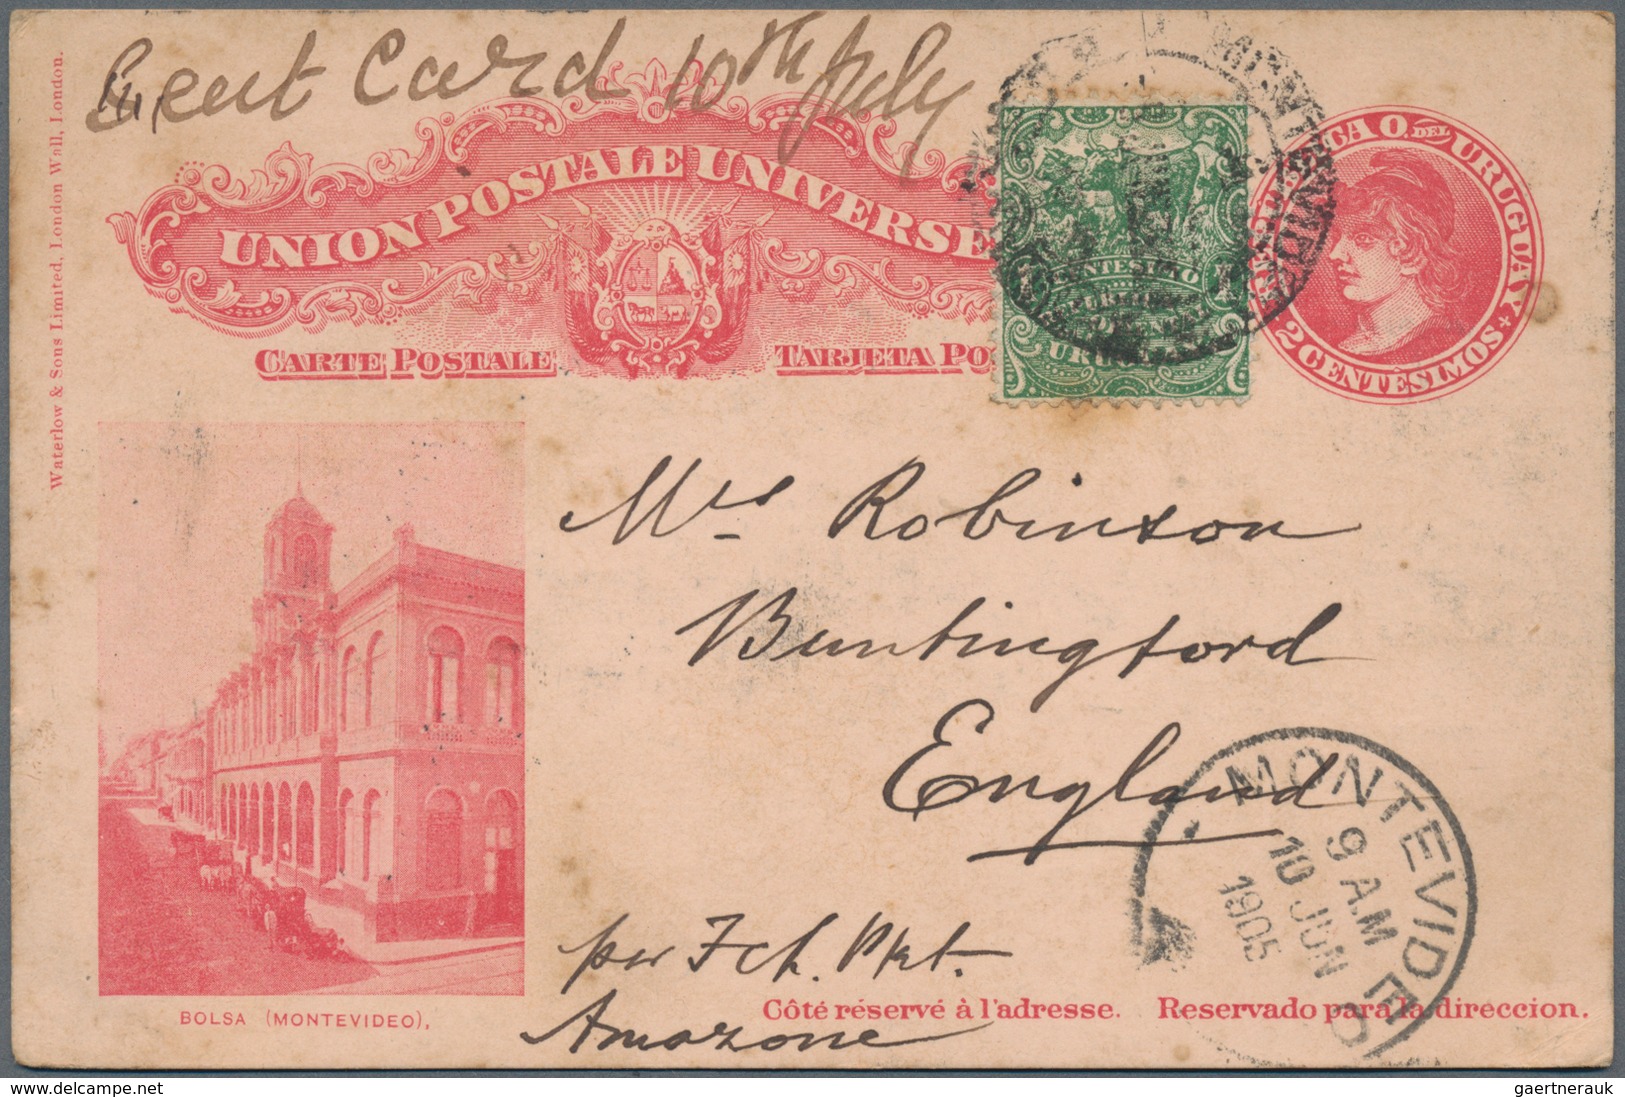 Sent Card 10th July
Waterlow & Sons Limited, London Wall, London.
UNION POSTALE UNIVERSE
CARTE POSTALE TARJETA PO
1 CENTESIMO 1
O. DEL URUGUAY
2 CENTÈSIMOS
Mrs Robinson
Buntingford
England
MONTEVIDEO
9 A.M
10 JUN
1905
per Fch. Pkt.
Amazone
BOLSA (MONTEVIDEO),
Côté réservé à l'adresse. Reservado para la direccion.
delcampe.net
gaertnerauk